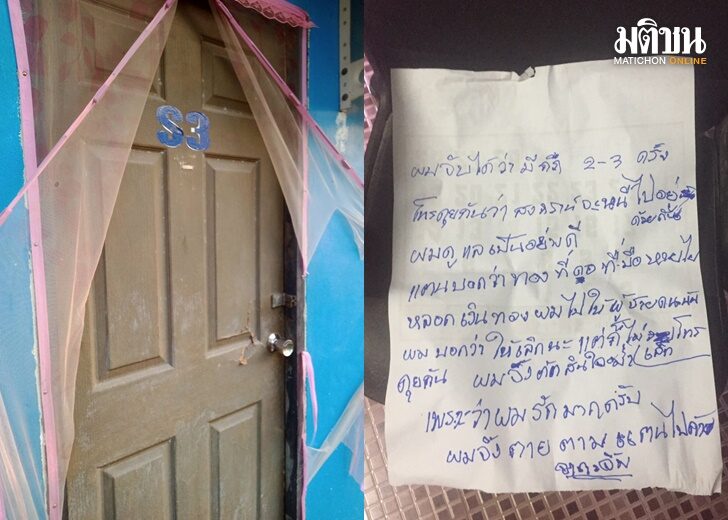 มติชน
MATICHON ONLINE
S3
ผมจับได้ว่า มีกิ๊ก 2-3 ครั้ง
โทรคุยกันว่า สงกรานต์จะหนีไปอยู่
ด้วยกัน
ผมดูแลเป็นอย่างดี
แตนบอกว่า ทองที่คอ ที่มือหายไป
หลอกเงินทองผมไปให้ผู้ชายคนนั้น
ผมบอกว่า ให้เลิกนะ แต่ก็ไม่ โทร
คุยกัน ผมจึงตัดสินใจฆ่า
เพราะว่าผมรักมากครับ
ผมจึงตายตาม แตนไปด้วย